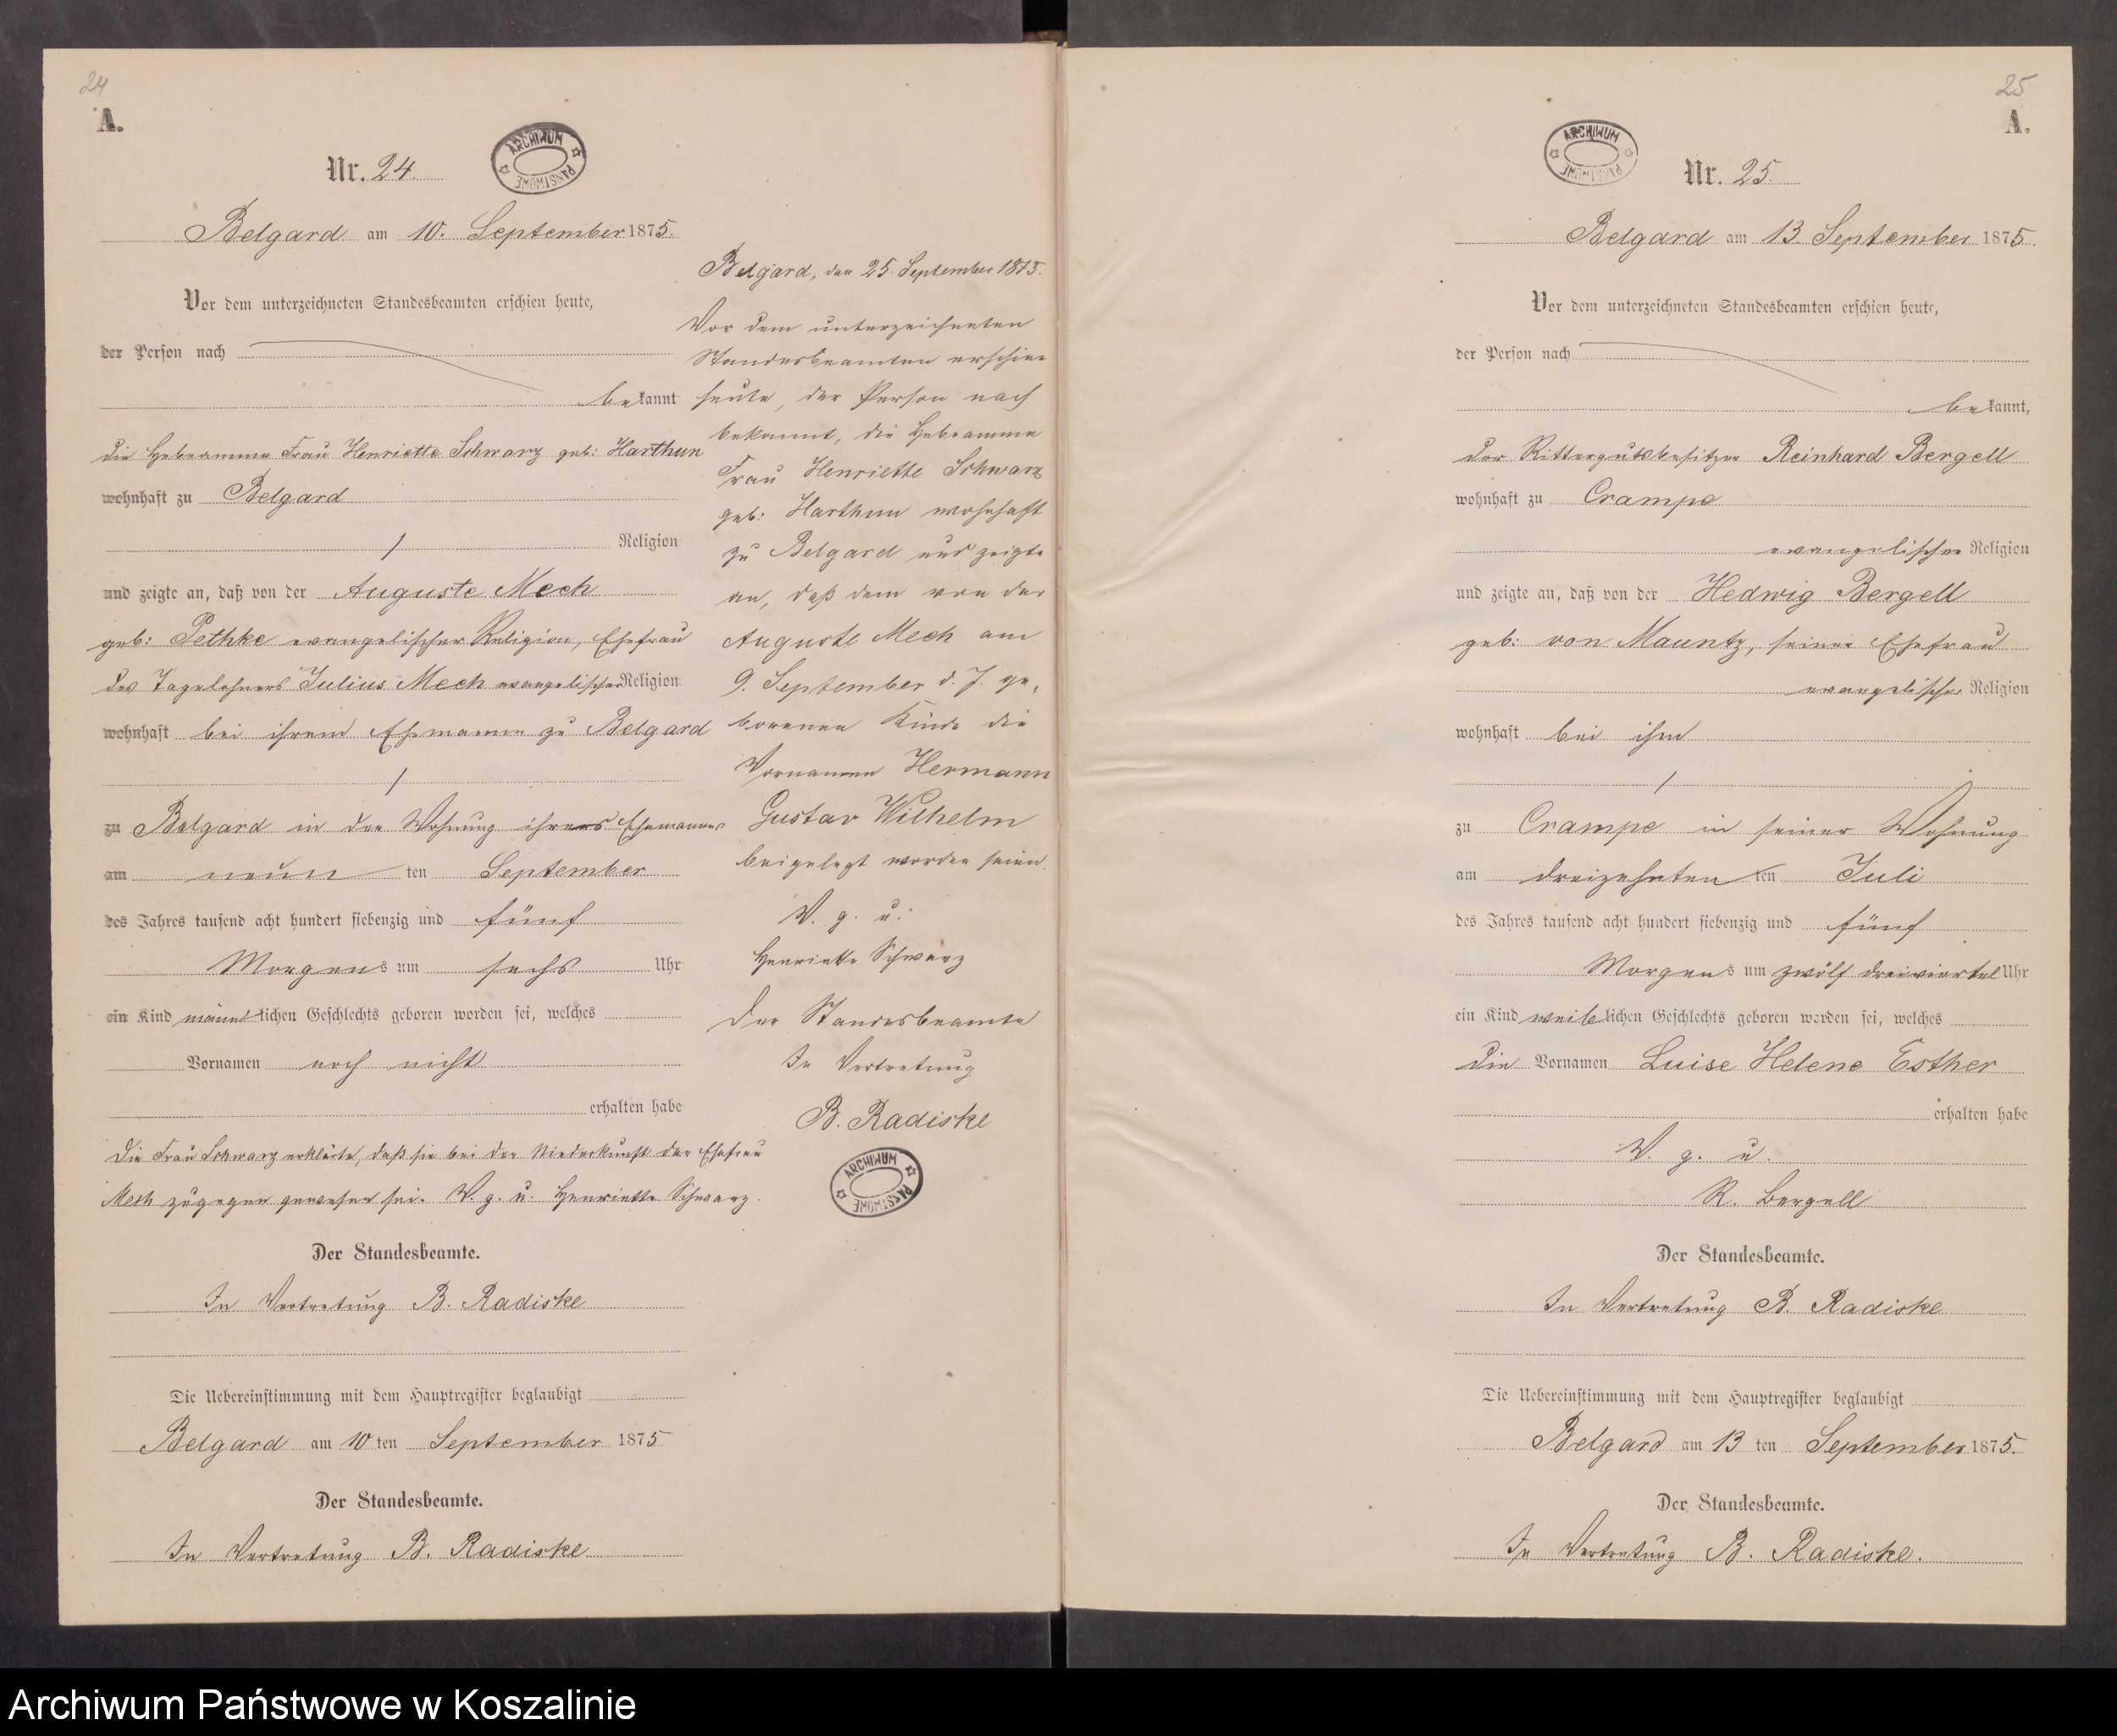 24
A.
Nr. 24.
ARCHIWUM PAŃSTWOWE
Belgard am 10. September 1875.
Vor dem unterzeichneten Standesbeamten erschien heute,
der Person nach
bekannt
die Hebeamme Frau Henriette Schwarz geb: Harthun
wohnhaft zu Belgard
/ Religion
und zeigte an, daß von der Auguste Mech
geb: Pethke evangelischer Religion, Ehefrau
des Tagelohners Julius Mech evangelischer Religion
wohnhaft bei ihrem Ehemanne zu Belgard
/
zu Belgard in der Wohnung ihres Ehemannes
am neun ten September
des Jahres tausend acht hundert siebenzig und fünf
Morgens um sechs Uhr
ein Kind männlichen Geschlechts geboren worden sei, welches
Vornamen noch nicht
erhalten habe
Die Frau Schwarz erklärte, daß sie bei der Niederkunft der Ehefrau
Mech zugegen gewesen sei. V. g. u. Henriette Schwarz.
Der Standesbeamte.
In Vertretung B. Radiske
Die Uebereinstimmung mit dem Hauptregister beglaubigt
Belgard am 10 ten September 1875
Der Standesbeamte.
In Vertretung B. Radiske
Belgard, den 25. September 1875.
Vor dem unterzeichneten
Standesbeamten erschien
heute, der Person nach
bekannt, die Hebeamme
Frau Henriette Schwarz
geb: Harthun wohnhaft
zu Belgard und zeigte
an, daß dem von der
Auguste Mech am
9. September d. J. ge-
borenen Kinde die
Vornamen Hermann
Gustav Wilhelm
beigelegt worden seien.
V. g. u.
Henriette Schwarz
Der Standesbeamte
In Vertretung
B. Radiske
ARCHIWUM PAŃSTWOWE
25
A.
ARCHIWUM PAŃSTWOWE
Nr. 25.
Belgard am 13. September 1875.
Vor dem unterzeichneten Standesbeamten erschien heute,
der Person nach
bekannt,
der Rittergutsbesitzer Reinhard Bergell
wohnhaft zu Crampe
evangelischer Religion
und zeigte an, daß von der Hedwig Bergell
geb: von Mauntz, seiner Ehefrau
evangelischer Religion
wohnhaft bei ihm
/
zu Crampe in seiner Wohnung
am dreizehnten ten Juli
des Jahres tausend acht hundert siebenzig und fünf
Morgens um zwölf dreiviertel Uhr
ein Kind weiblichen Geschlechts geboren worden sei, welches
die Vornamen Luise Helene Esther
erhalten habe
V. g. u.
R. Bergell
Der Standesbeamte.
In Vertretung B. Radiske
Die Uebereinstimmung mit dem Hauptregister beglaubigt
Belgard am 13 ten September 1875.
Der Standesbeamte.
In Vertretung B. Radiske.
Archiwum Państwowe w Koszalinie